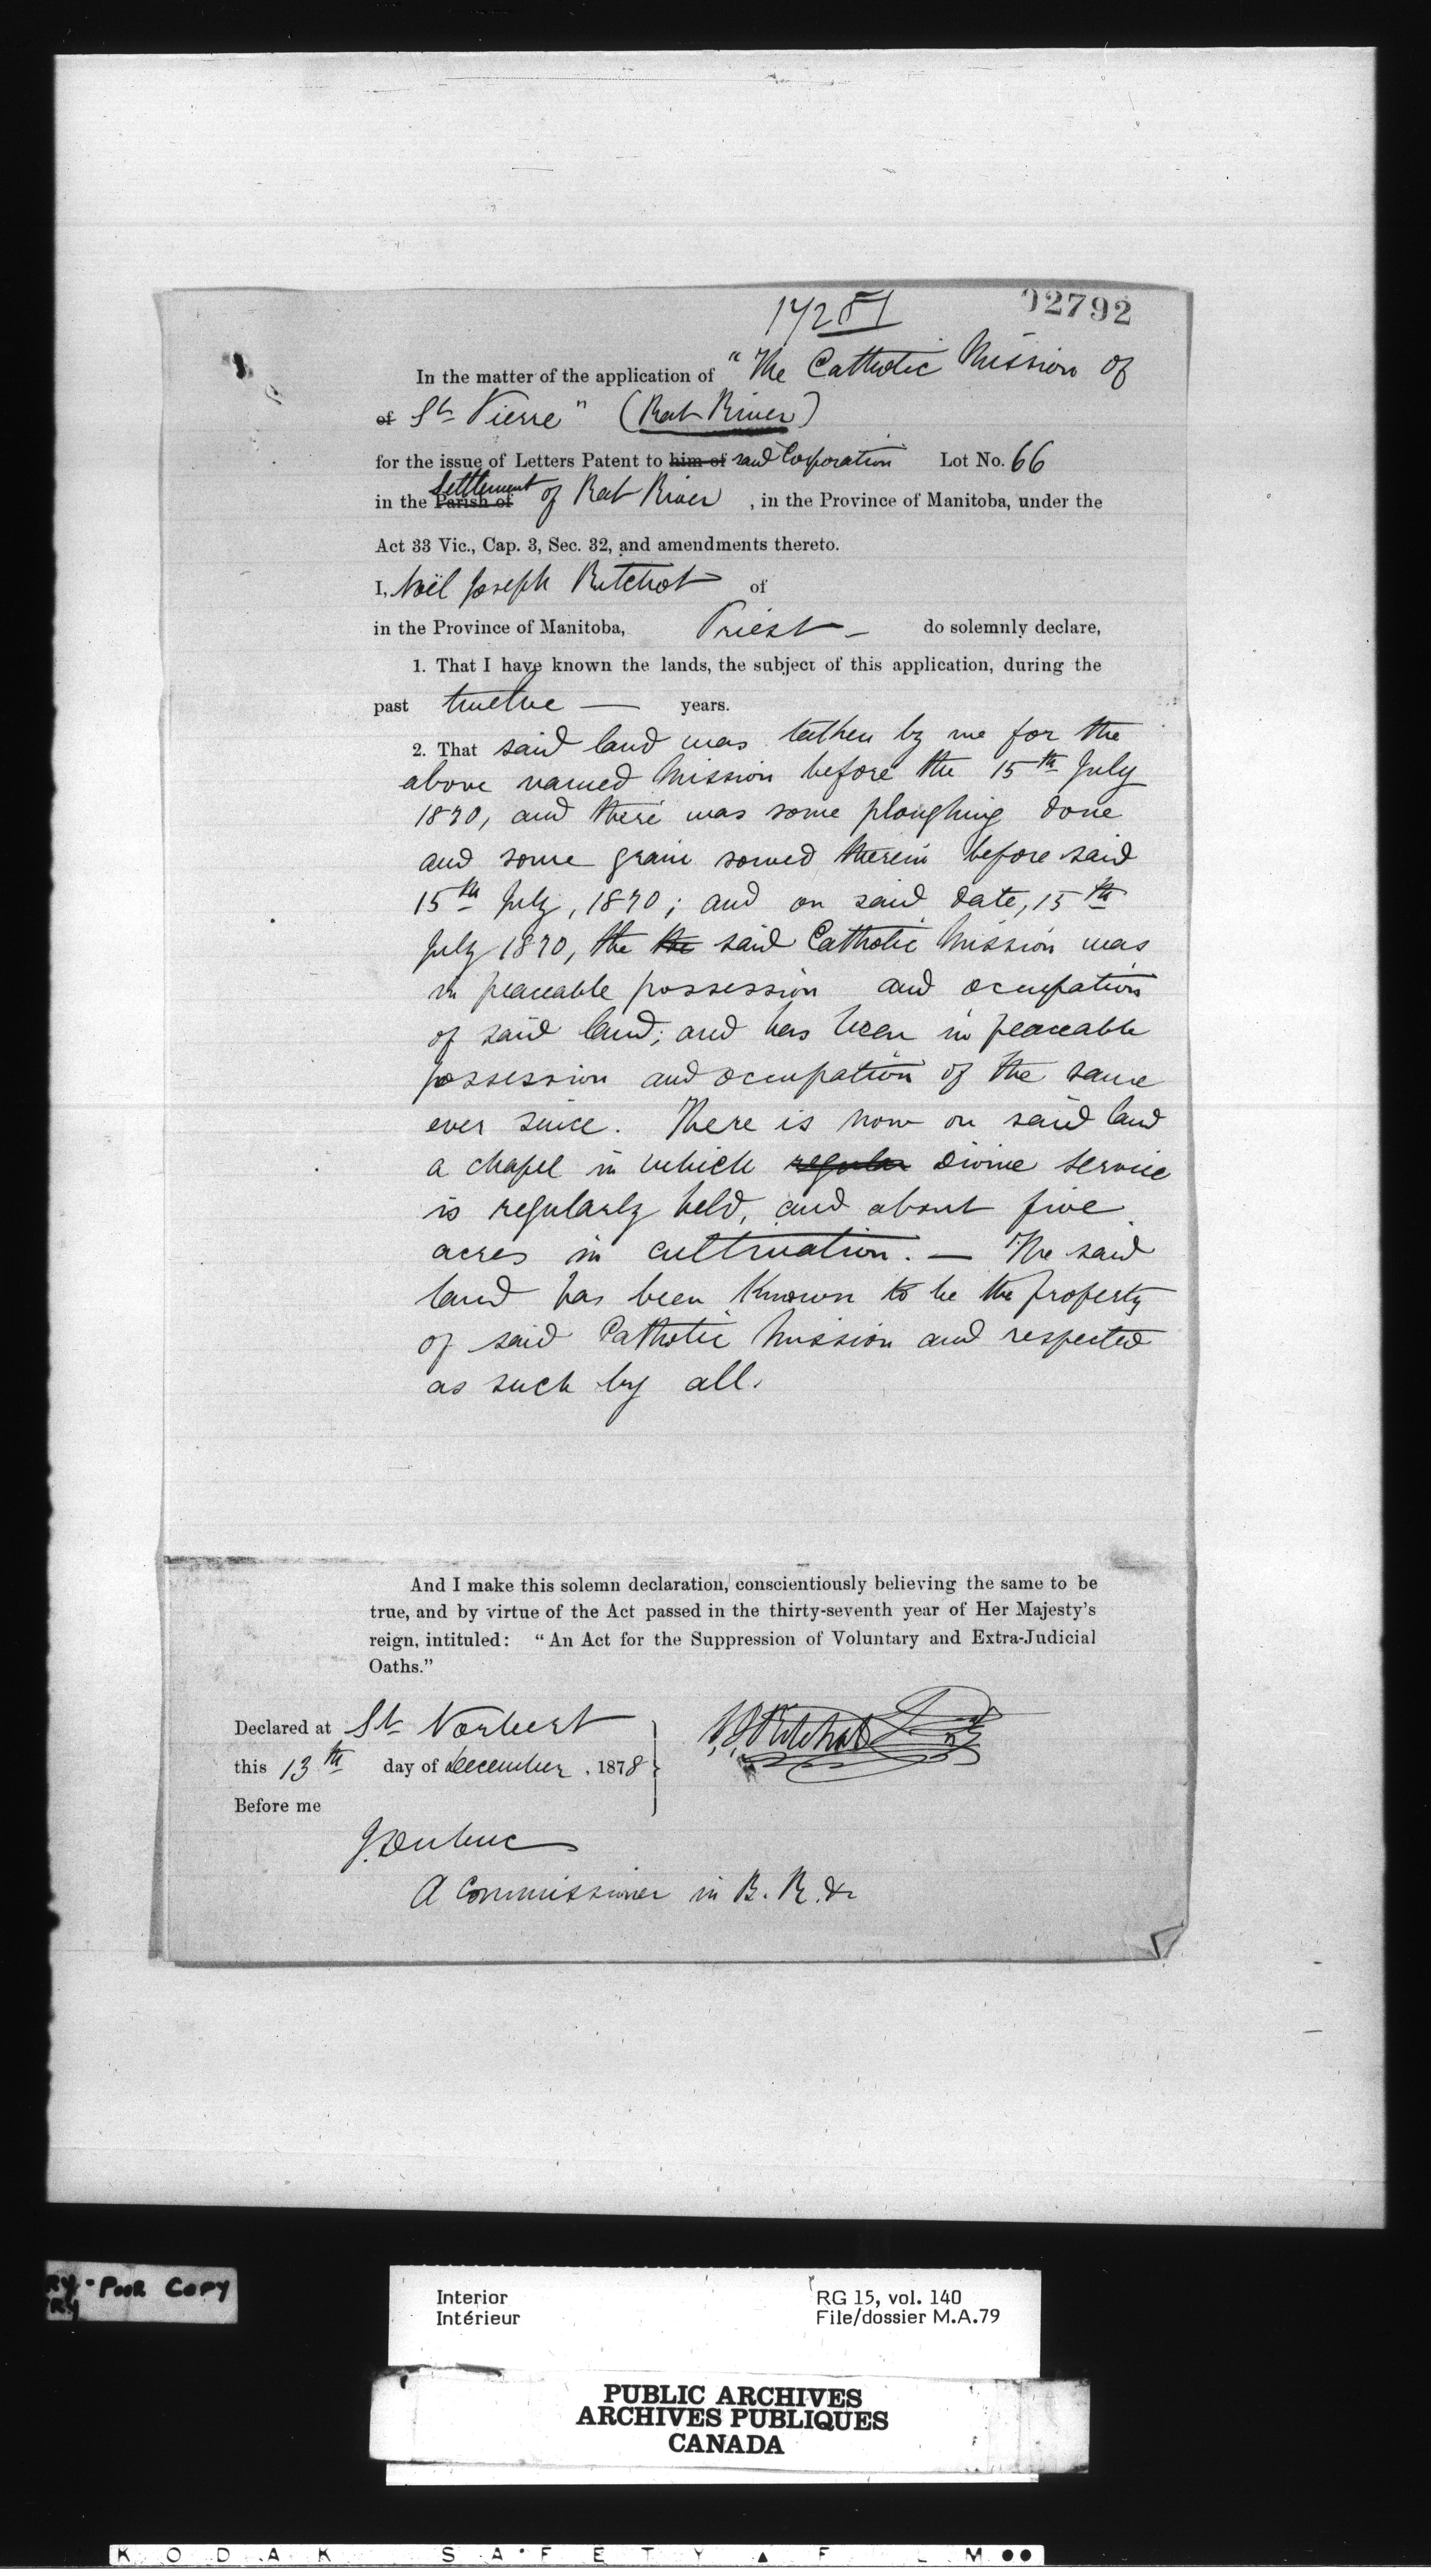 17281
02792
In the matter of the application of "The Catholic Mission of
of St Pierre" (Rat River)
for the issue of Letters Patent to him of said Corporation Lot No. 66
in the Parish of Settlement of Rat River, in the Province of Manitoba, under the
Act 33 Vic., Cap. 3, Sec. 32, and amendments thereto.
I, Noël Joseph Ritchot of
in the Province of Manitoba, Priest – do solemnly declare,
1. That I have known the lands, the subject of this application, during the
past twelve — years.
2. That said land was tathen by me for the
above named Mission before the 15th July
1870, and there was some ploughing done
and some grain sowed therein before said
15th July, 1870; and on said date, 15th
July 1870, the the said Catholic Mission was
in peaceable possession and occupation
of said land; and has been in peaceable
possession and occupation of the same
ever since. There is now on said land
a chapel in which regular divine service
is regularly held, and about five
acres in cultivation. — The said
land has been known to be the property
of said Catholic Mission and respected
as such by all.
And I make this solemn declaration, conscientiously believing the same to be
true, and by virtue of the Act passed in the thirty-seventh year of Her Majesty's
reign, intituled: "An Act for the Suppression of Voluntary and Extra-Judicial
Oaths."
Declared at St Norbert
this 13th day of December, 1878
Before me
N. J. Ritchot Ptre
J. Dubuc
A Commissioner in B. R. &c
RY - POOR COPY
RY
Interior
Intérieur
RG 15, vol. 140
File/dossier M.A.79
PUBLIC ARCHIVES
ARCHIVES PUBLIQUES
CANADA
KODAK SAFETY FILM